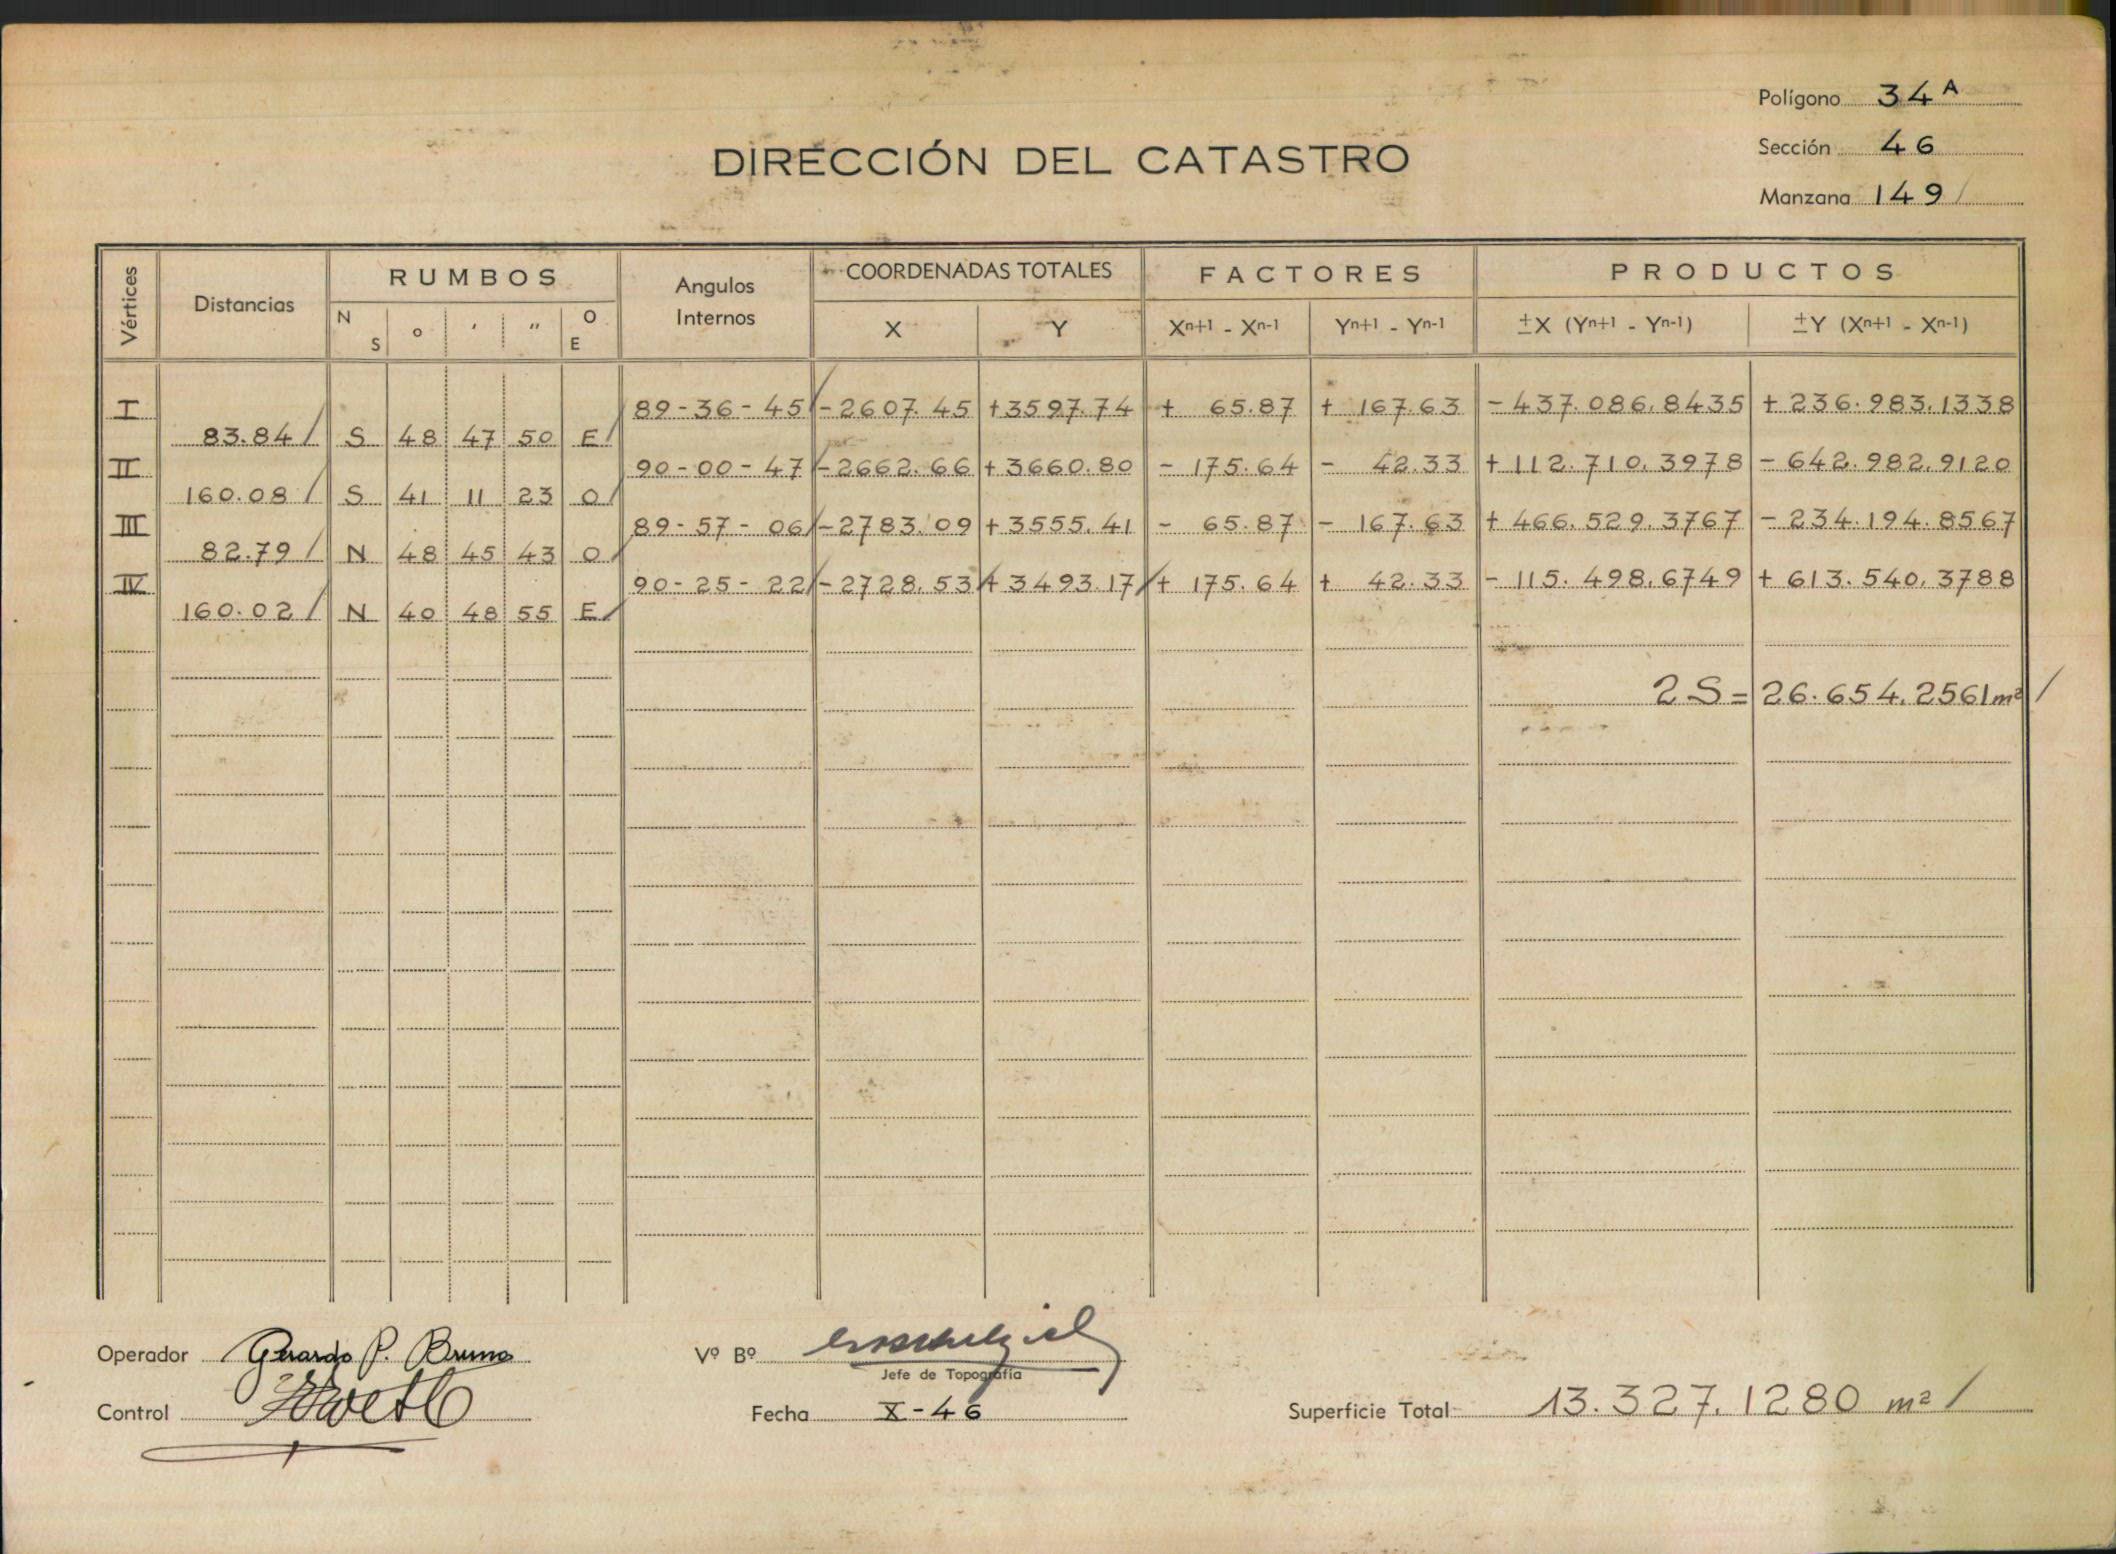 Polígono 34 A
Sección 46
Manzana 149/
DIRECCIÓN DEL CATASTRO
Vértices Distancias RUMBOS Angulos Internos COORDENADAS TOTALES FACTORES PRODUCTOS
N S ° ' " O E X Y Xn+1 - Xn-1 Yn+1 - Yn-1 ±X (Yn+1 - Yn-1) ±Y (Xn+1 - Xn-1)
I 89-36-45 -2607.45 +3597.74 + 65.87 + 167.63 -437.086,8435 +236.983,1338
83.84/ S 48 47 50 E/
II 90-00-47 -2662.66 +3660.80 - 175.64 - 42.33 +112.710,3978 -642.982,9120
160.08/ S 41 11 23 O/
III 89-57-06 -2783.09 +3555.41 - 65.87 - 167.63 +466.529,3767 -234.194.8567
82.79/ N 48 45 43 O/
IV 90-25-22 -2728.53 +3493.17 + 175.64 + 42.33 -115.498,6749 +613.540,3788
160.02/ N 40 48 55 E/
2S= 26.654,2561 m² /
Operador Gerardo P. Bruno
Vº Bº
Jefe de Topografía
Control
Fecha X-46
Superficie Total 13.327,1280 m² /